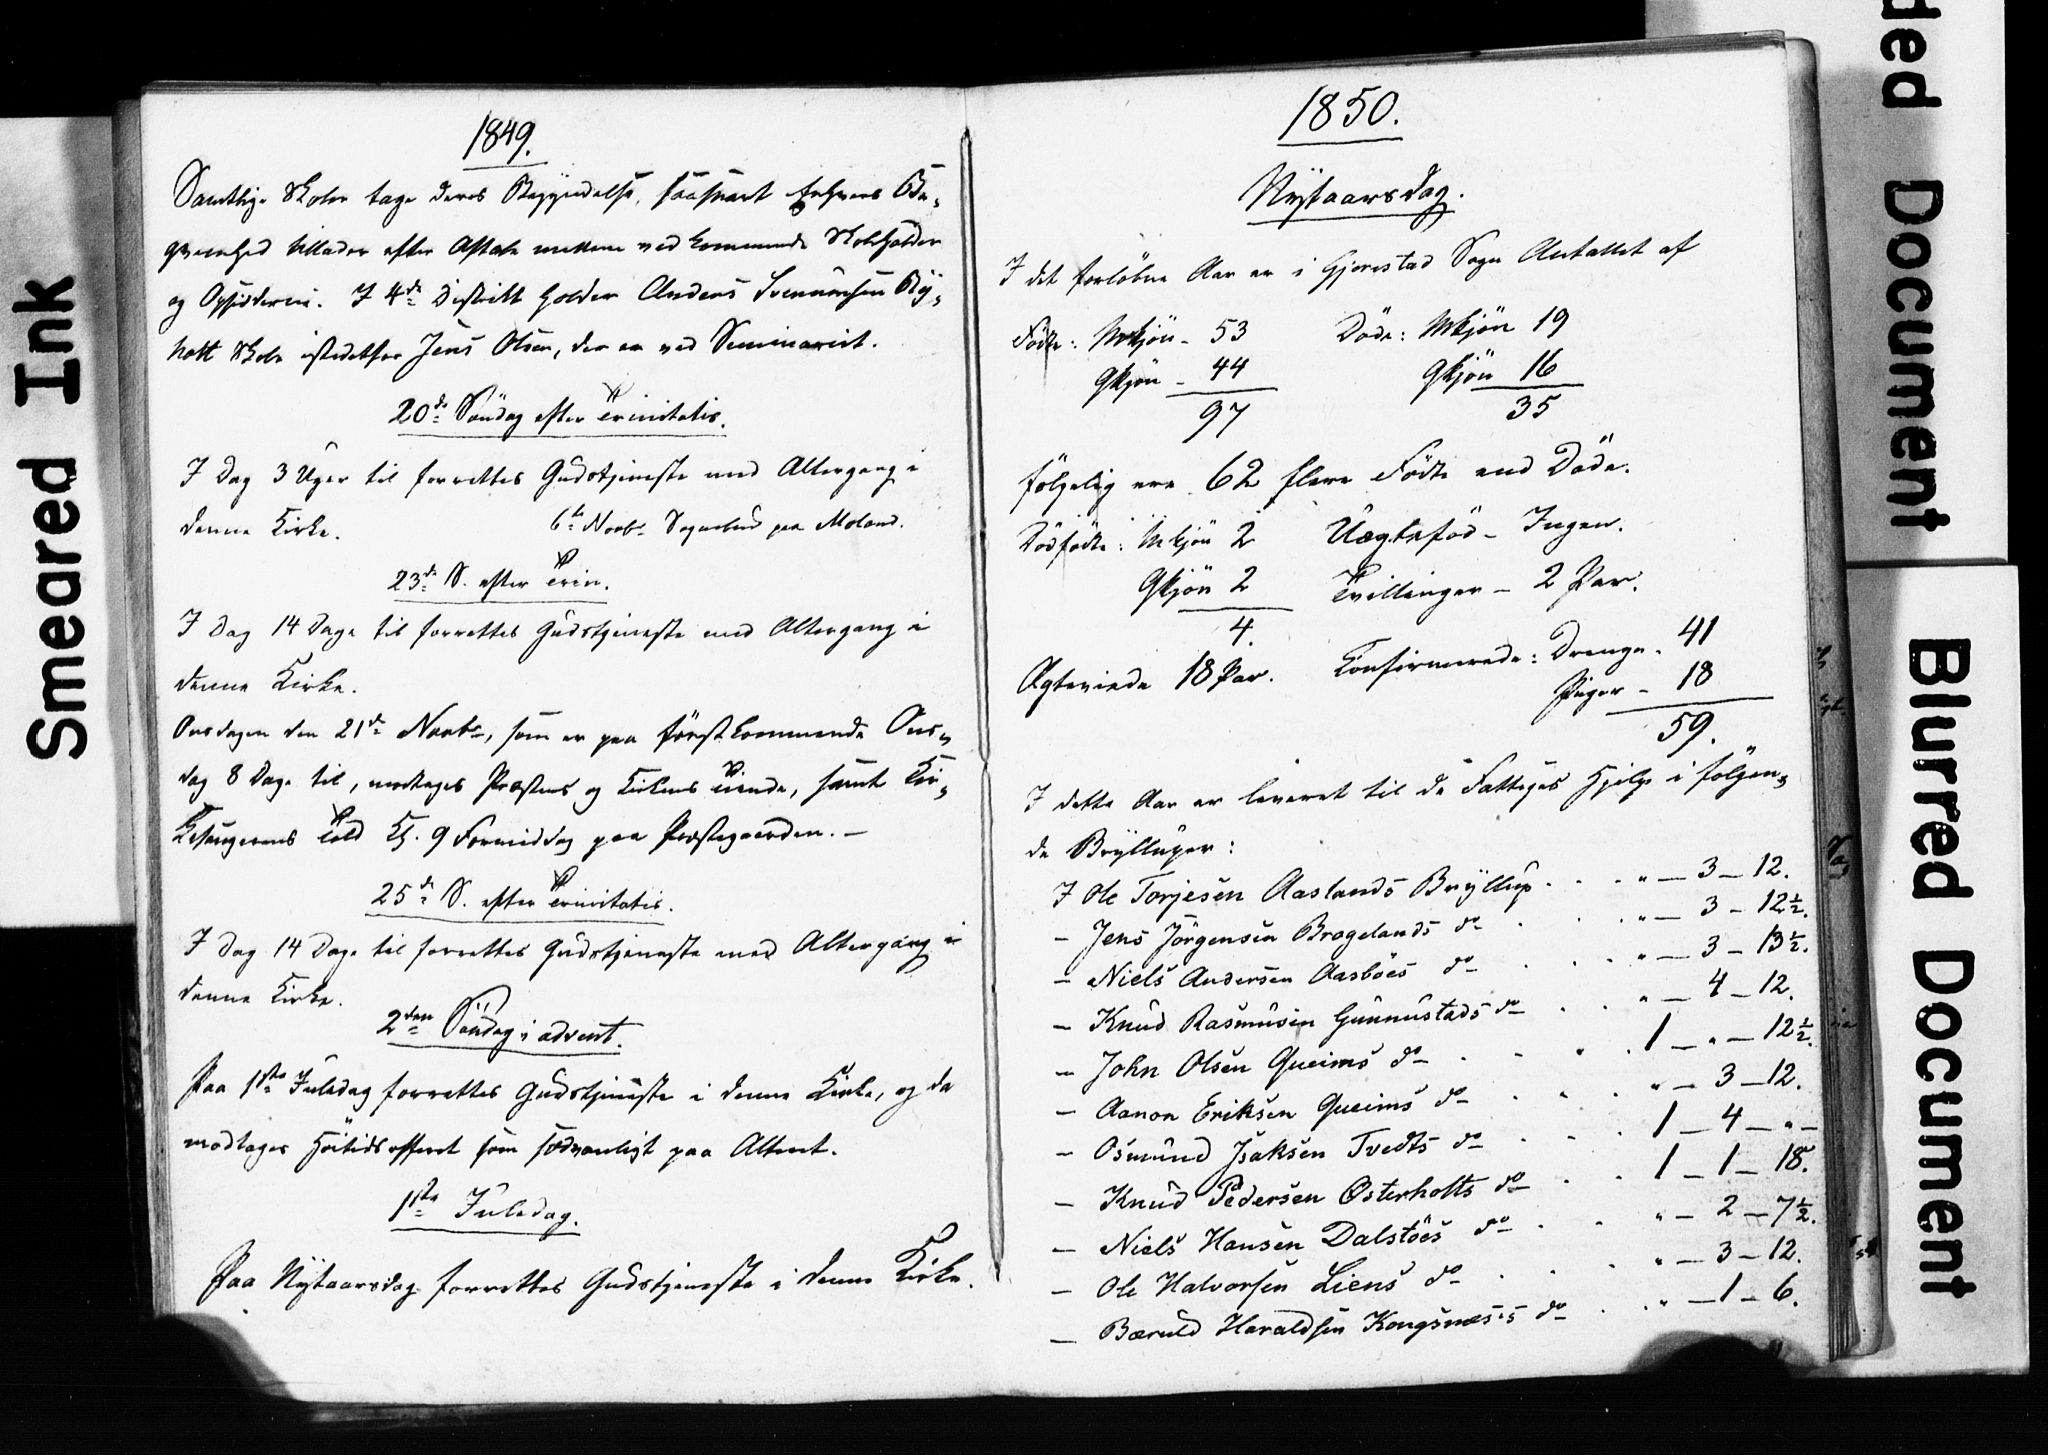 1849.
Samtlige Skoler tage deres Begyndelse, saasnart Enhvers Be-
qvemhed tillader efter Aftale mellem vedkommende Skoleholder
og Opsidderne. I 4de District holder Anders Svennungsen By-
holt Skole istedetfor Jens Olsen, der er ved Seminariet.
20de Søndag efter Trinitatis.
I Dag 3 Uger til forrettes Gudstjeneste med Altergang i
denne Kirke. 6te Novbr Sognebud paa Moland.
23de S. efter Trin.
I Dag 14 Dage til forrettes Gudstjeneste med Altergang i
denne Kirke.
Onsdagen den 21de Novbr, som er paa førstkommende Ons-
dag 8 Dage til, modtages Præstens og Kirkens Tiende, samt Kir-
kesangerens Told Kl. 9 Formiddag paa Præstegaarden. —
25de S. efter Trinitatis.
I Dag 14 Dage til forrettes Gudstjeneste med Altergang i
denne Kirke.
2den Søndag i advent.
Paa 1ste Juledag forrettes Gudstjeneste i denne Kirke, og da
modtages Höitidsofferet som sedvanligt paa Alteret.
1ste Juledag.
Paa Nytaarsdag forrettes Gudstjeneste i denne Kirke.
1850.
Nytaarsdag.
I det forløbne Aar er i Gjerestad Sogn Antallet af
Födte: Mkjön - 53 Döde: Mkjön 19
Qkjön - 44 Qkjön 16
97 35
følgelig ere 62 flere Födte end Döde.
Dödfödte: Mkjön 2 Uægteföd - Ingen.
Qkjön 2 Tvillinger - 2 Par.
4.
Ægteviede 18 Par. Konfirmerede: Drenge - 41
Piger - 18
59.
I dette Aar er leveret til de Fattiges Hjelp i følgen-
de Bryllüper:
I Ole Torjesen Aaslands Bryllüp . . . " — 3 — 12.
— Jens Jörgensen Bragelands do . . . " — 3 — 12½.
— Niels Andersen Aasböes do . . . " — 3 — 13½.
— Knud Rasmusen Gunnustads do . . " — 4 — 12.
— John Olsen Queims do . . . 1 — " — 12½.
— Aanon Eriksen Queims do . . . " — 3 — 12.
— Osmund Isaksen Tvedts do . . . 1 — 4 — " —
— Knud Pedersen Østerholts do . . 1 — 1 — 18.
— Niels Hansen Dalstöes do . . " — 2 — 7½.
— Ole Halvorsen Liens do . . . " — 3 — 12.
— Bæruld Haraldsen Kongsnæs's do . . " — 1 — 6.
Smeared Ink
ded Document
Blurred Document